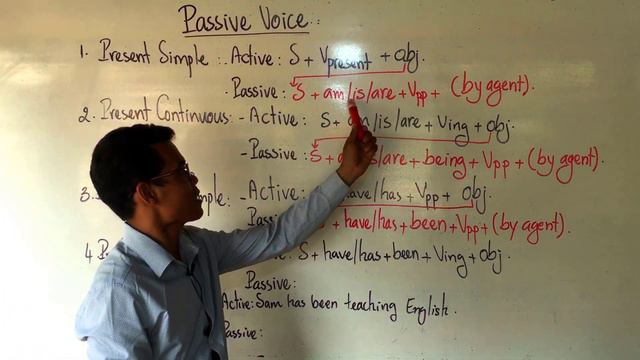 Passive Voice :
1. Present Simple : . Active : S + Vpresent + obj.
. Passive : S + am/is/are + Vpp + (by agent).
2. Present Continuous : - Active : S + am/is/are + Ving + obj.
- Passive : S + /is/are + being + Vpp + (by agent).
3. : - Active : have/has + Vpp + obj.
have/has + been + Vpp + (by agent).
4. : S + have/has + been + Ving + obj.
Passive :
Active : Sam has been teaching English.
Passive :